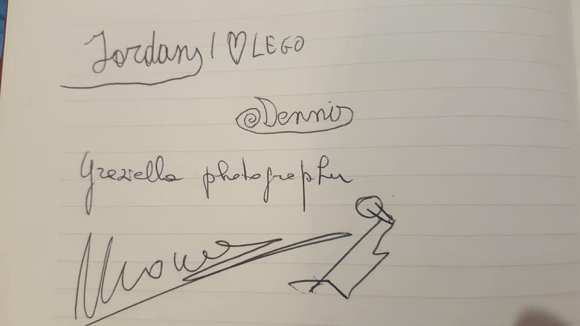 Jordan I ♡ LEGO
@Dennis
Graziella photographer